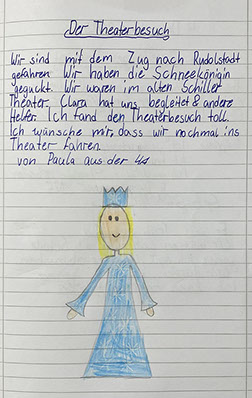 Der Theaterbesuch
Wir sind mit dem Zug nach Rudolstadt
gefahren. Wir haben die Schneekönigin
geguckt. Wir waren im alten Schiller
Theater. Clara hat uns begleitet & andere
Helfer. Ich fand den Theaterbesuch toll.
Ich wünsche mir, dass wir nochmal ins
Theater fahren.
von Paula aus der 4a